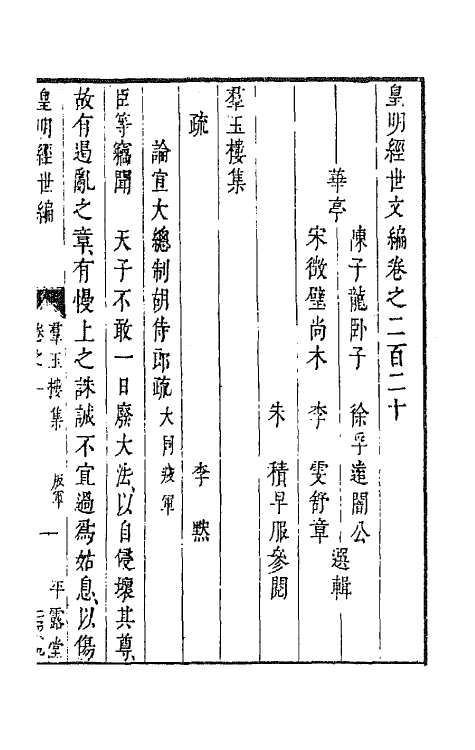 皇明經世文編卷之二百二十
陳子龍卧子　徐孚遠闇公
華亭　選輯
宋徵璧尚木　李　雯舒章
朱　積早服參閱
羣玉樓集
疏　李　默
論宣大總制胡侍郎疏大同叛軍
臣等竊聞　天子不敢一日廢大法、以自侵壞其尊、
故有遏亂之章、有慢上之誅誠不宜過爲姑息、以傷
皇明經世編　卷之　羣玉樓集　叛軍　一　平露堂